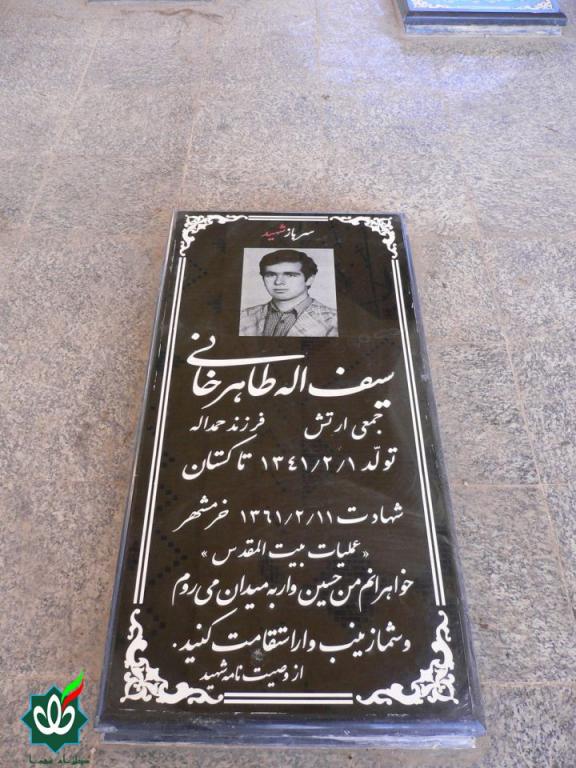 سرباز شهید
سیف اله طاهرخانی
جمعی ارتش فرزند حمداله
تولّد ۱۳۴۱/۲/۱ تاکستان
شهادت ۱۳۶۱/۲/۱۱ خرمشهر
«عملیات بیت المقدس»
خواهرانم من حسین وار به میدان می روم
و شما زینب وار استقامت کنید.
از وصیت نامه شهید